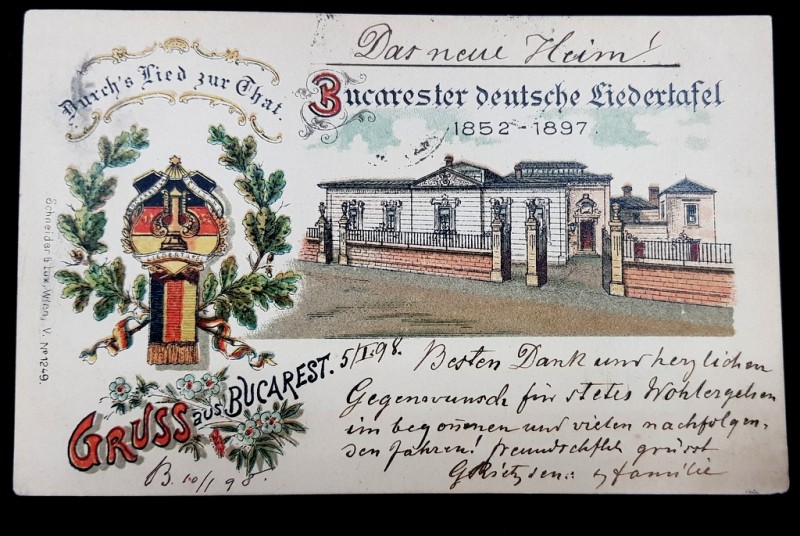 Das neue Heim!
Durch's Lied zur That.
Bucarester deutsche Liedertafel
1852-1897.
LIEDERTAFEL
Schneider & Lux, Wien, V. Nº 1249.
GRUSS aus BUCAREST. 5/I.98.
Besten Dank und herzlichen
Gegenwunsch für stetes Wohlergehen
im begonnenen und vielen nachfolgen-
den Jahren! freundschftlch grüsst
Familie
B. 10/I 98.